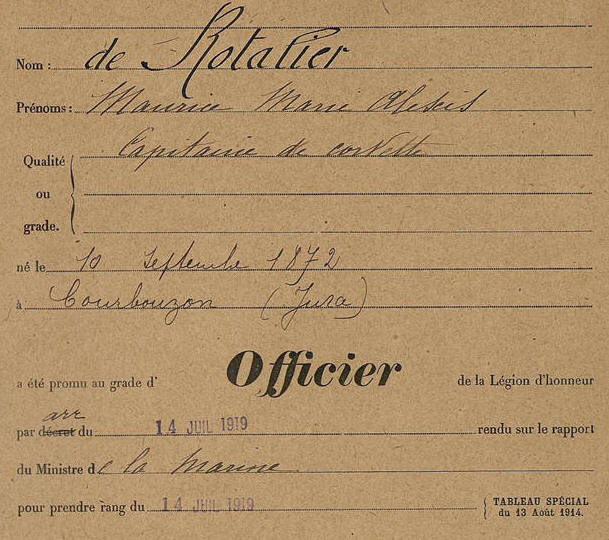 Nom : de Rotalier
Prénoms : Maurice Marie Alexis
Qualité ou grade. Capitaine de corvette
né le 10 septembre 1872
à Courbouzon (Jura)
a été promu au grade d' Officier de la Légion d'honneur
par décret arr du 14 JUIL 1919 rendu sur le rapport
du Ministre de la Marine
pour prendre rang du 14 JUIL 1919 TABLEAU SPÉCIAL
du 13 Août 1914.